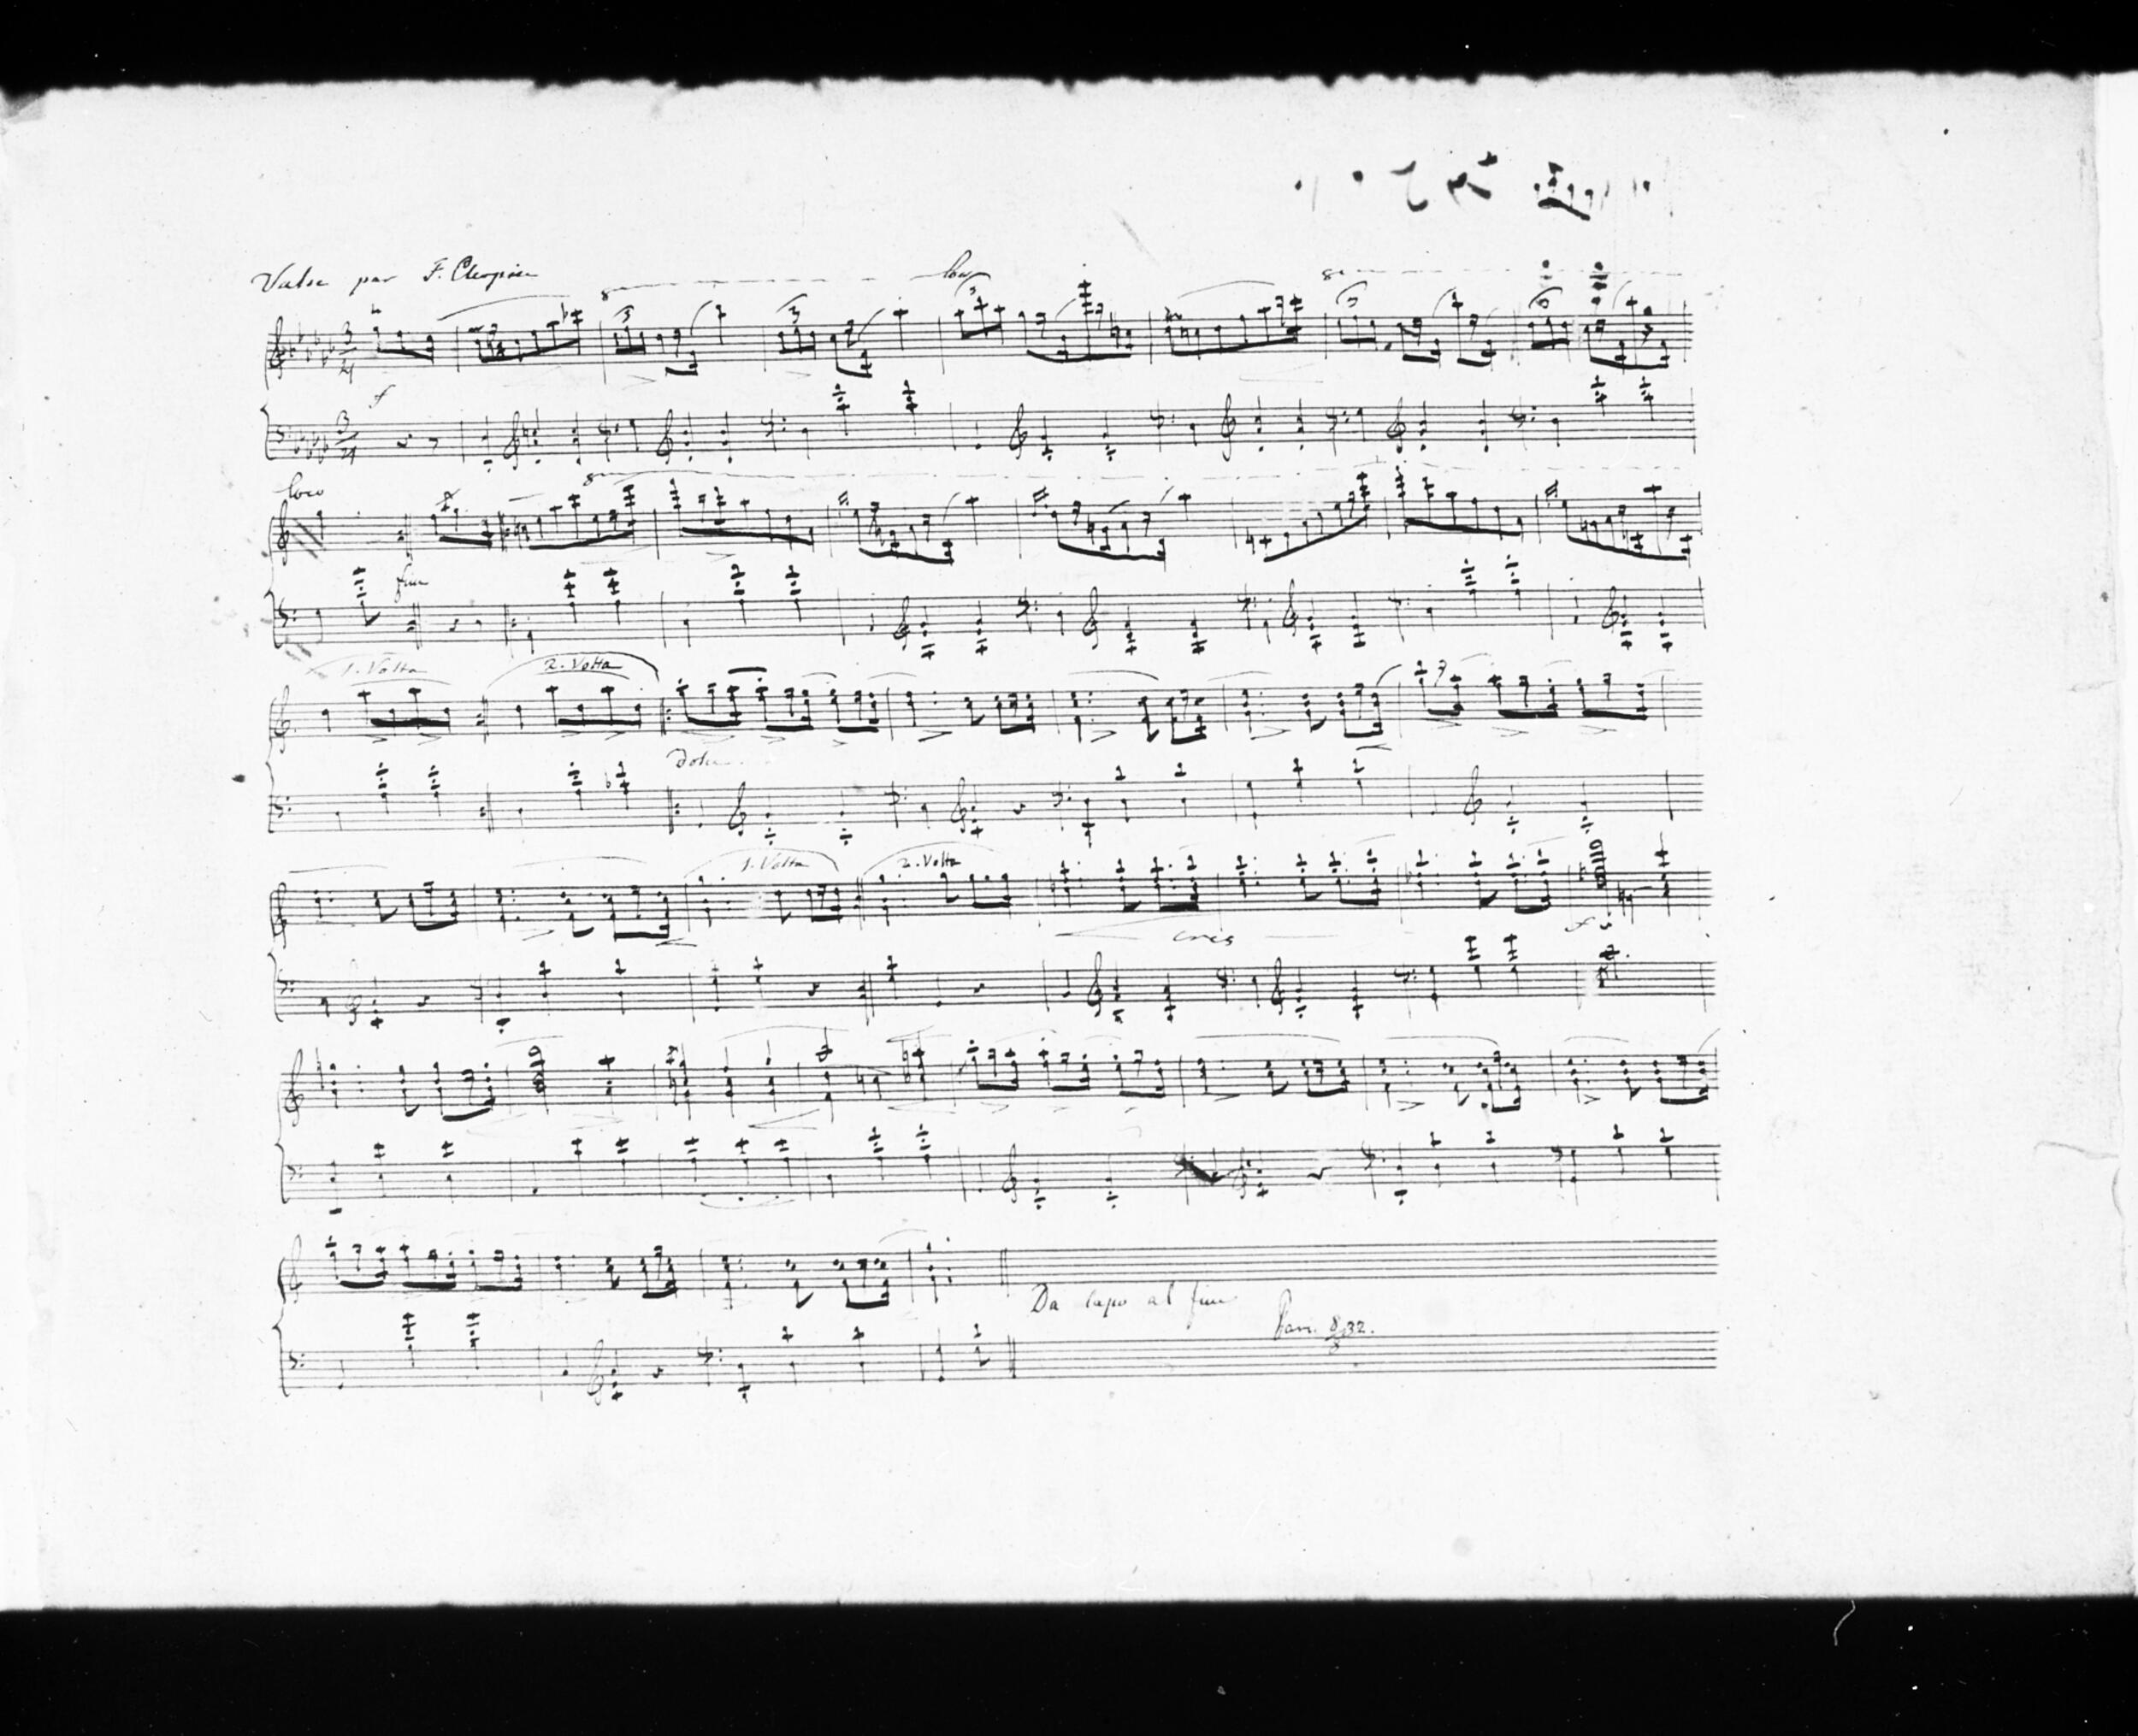 Valse par F. Chopin
8 loco 8
3 3 3 3
3/4
f
3/4
loco 8
fine
1. Volta 2. Volta
Dolce
1. Volta 2. Volta
cres
f
Da capo al fine
8/8 32.